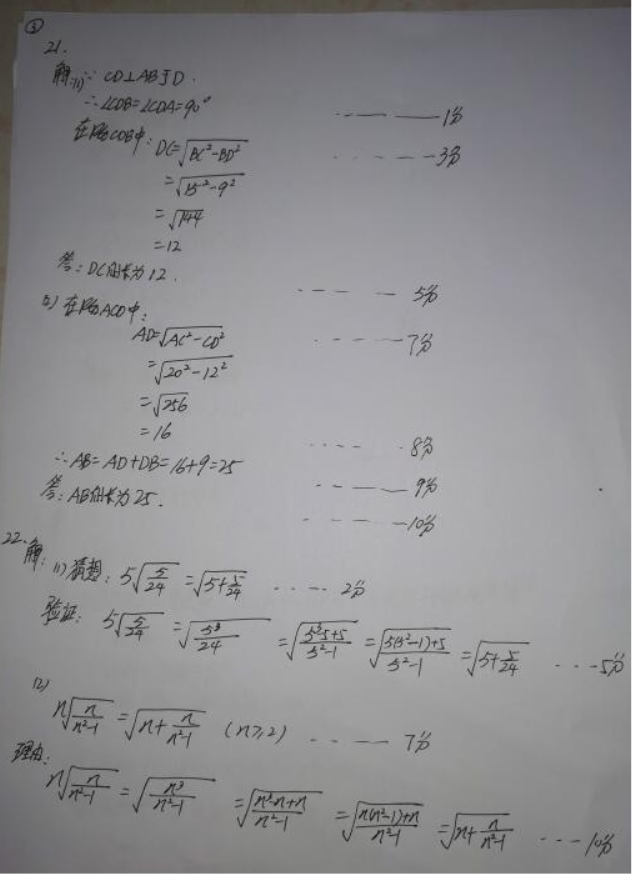 ③
21.
解:(1)∵ CD⊥AB于D.
∴∠CDB=∠CDA=90° ---- 1分
在Rt△CDB中: DC=√(BC²-BD²) ---- 3分
=√(15²-9²)
=√144
=12
答:DC的长为12. ---- 5分
(2) 在Rt△ACD中:
AD=√(AC²-CD²) ---- 7分
=√(20²-12²)
=√256
=16 ---- 8分
∴AB=AD+DB=16+9=25 ---- 9分
答:AB的长为25. ---- 10分
22.解:(1)猜想: 5√(5/24) =√(5+5/24) ---- 2分
验证: 5√(5/24) =√(5³/24) =√((5³-5+5)/(5²-1)) =√((5(5²-1)+5)/(5²-1)) =√(5+5/24) ---- 5分
(2)
n√(n/(n²-1)) =√(n+n/(n²-1)) (n≥2) ---- 7分
理由:
n√(n/(n²-1)) =√(n³/(n²-1)) =√((n³-n+n)/(n²-1)) =√((n(n²-1)+n)/(n²-1)) =√(n+n/(n²-1)) ---- 10分